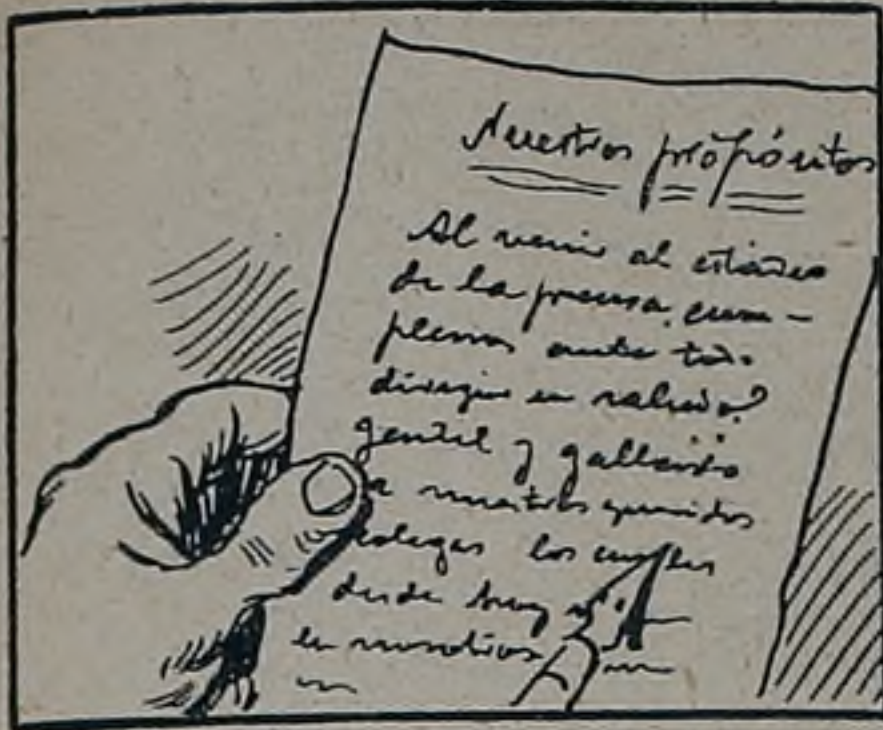 Nuestros propósitos
Al venir al estadio
de la prensa, cum-
plenos ante to.
dirigir un saludo
gentil y gallardo
a nuestros queridos
colegas los cuales
desde hoy
en nosotros